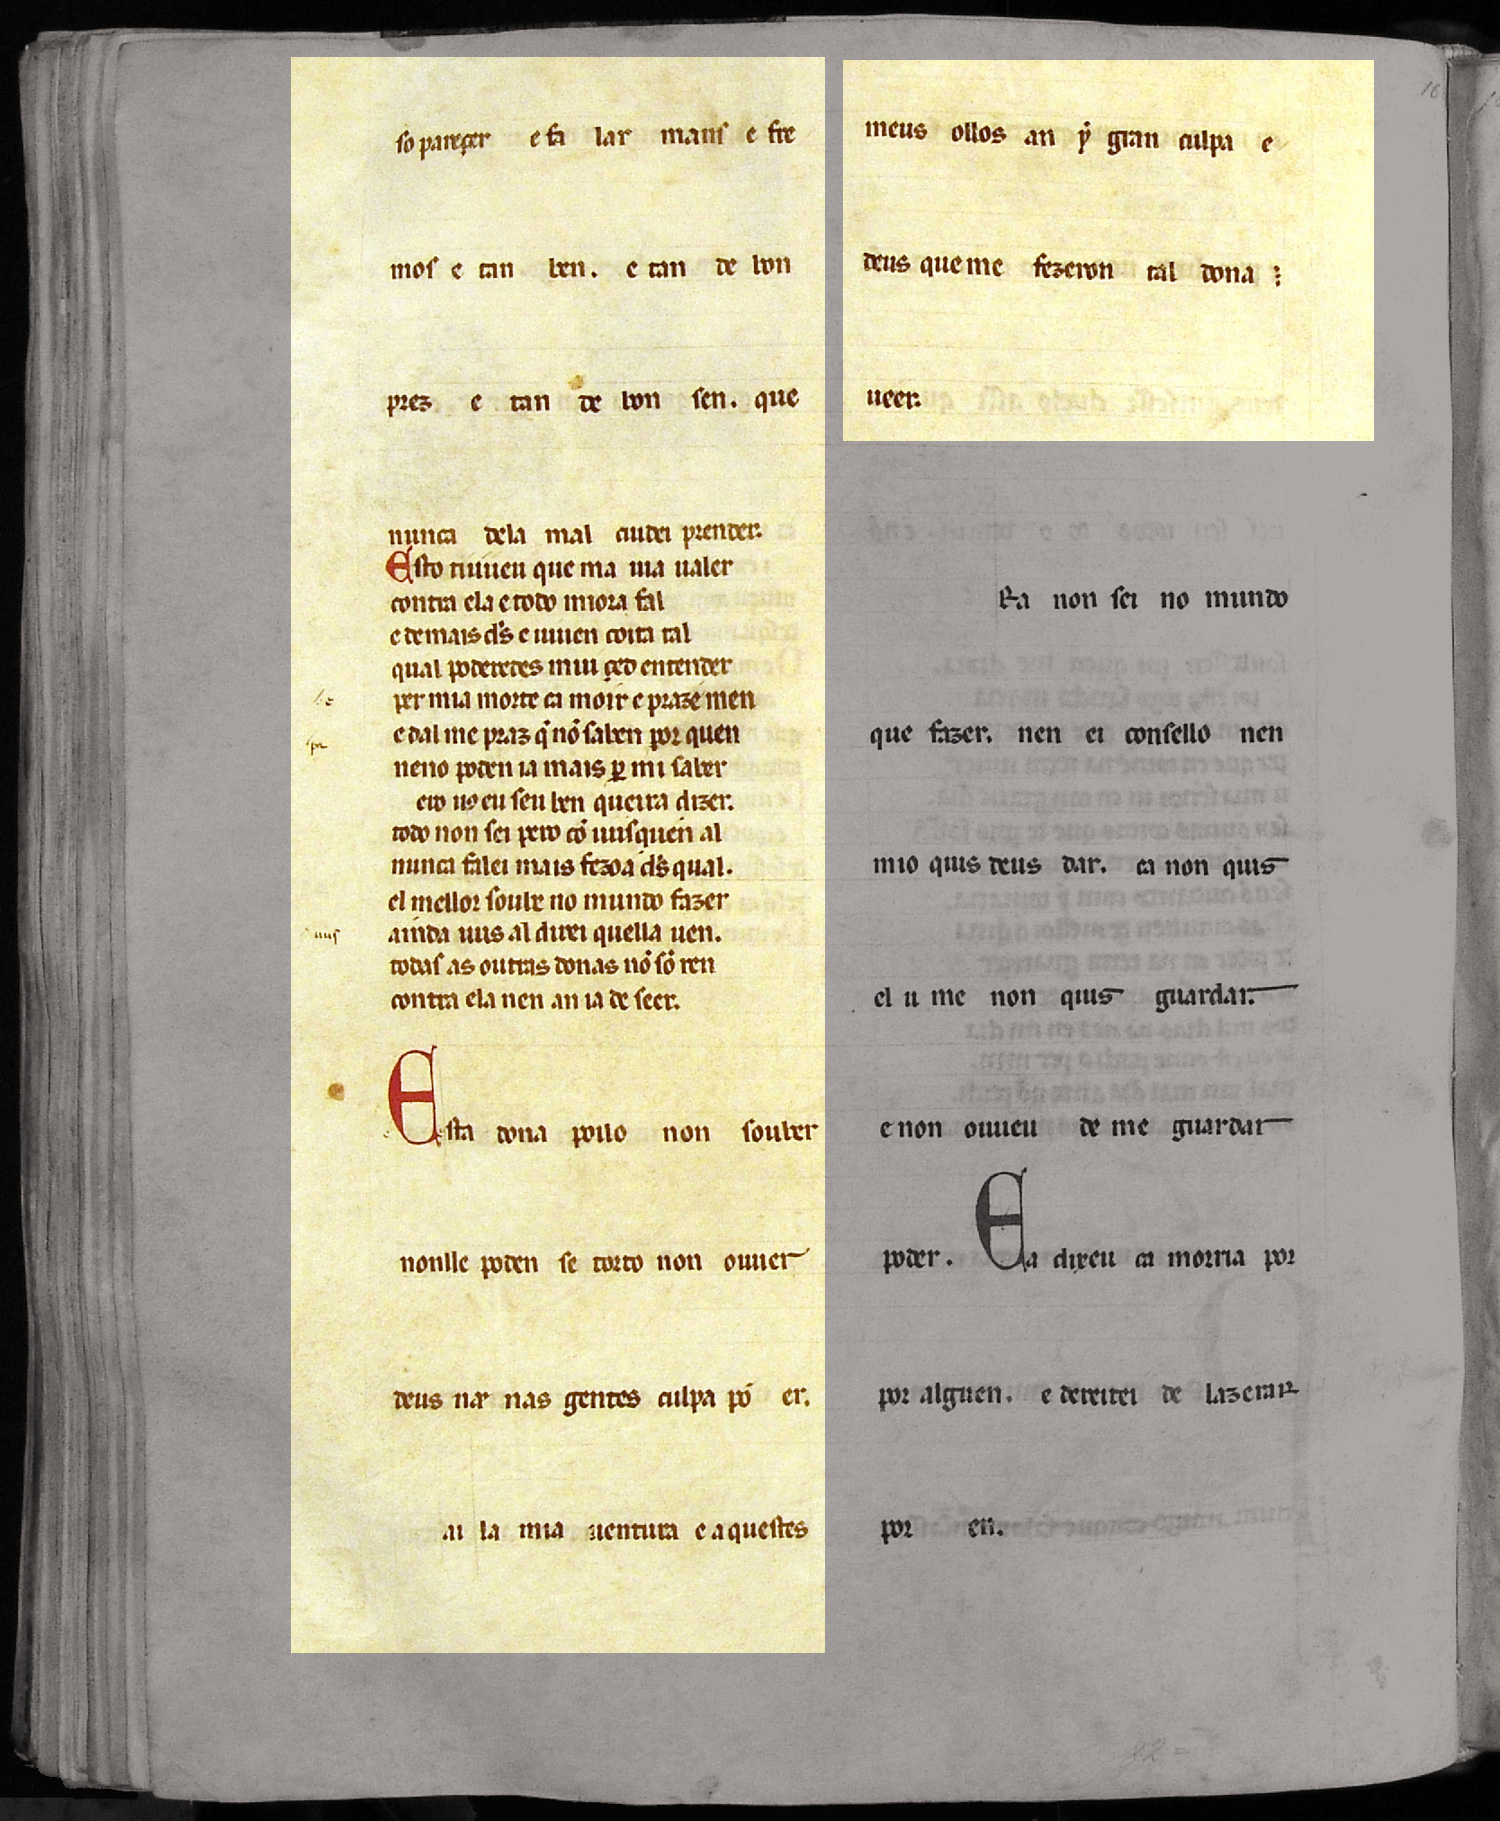 so pareçer e fa lar manſ e fre
moſ e tan ben. e tan de bon
prez e tan de bon sen. que
nunca dela mal cuidei prender.
Esto riuueu que ma uia ualer
contra ela e todo miora fal
e demais d̃s e uiuen coita tal
qual poderedes mui çed entender
per mia morte ca moir e prazemen
e dal me praz q̃ nõ saben por quen
neno poden ia mais ꝑ mi saber
ero uꝯ eu seu ben queira dizer.
todo non sei pero cõ uusquen al
nunca falei mais fezoa d̃s qual.
el mellor soube no mundo fazer
ainda uus al direi quella uen.
todaſ as outras donas nõ sõ ren
contra ela nen an ia de seer.
uus
Esta dona poilo non souber
nonlle poden se torto non ouuer
deus nen nas gentes culpa põ er.
ai la mia uentura e aquestes
meus ollos an ẏ gran culpa e
deus que me fezeron tal dona
ueer.
Ea non sei no mundo
que fazer. nen ei consello nen
mio quis deus dar. ca non quis
el u me non quis guardar.
e non ouueu de me guardar
poder. Ca dixeu ca morria por
por alguen. e dereitei de lazerar
por en.
82